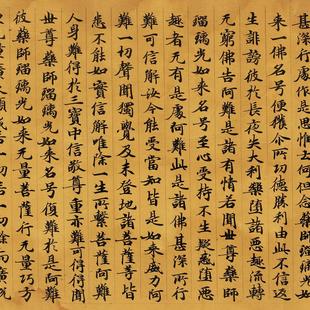 甚深行處但念藥師瑠璃光如
來一佛名号便獲尒所功德勝利由此不信返
生誹謗彼於長夜失大利樂墮諸惡趣流轉
无窮佛告阿難是諸有情若聞世尊藥師
瑠璃光如來名号至心受持不生疑惑墮惡
趣者无有是處阿難此是諸佛甚深所行
難可信解汝今能受當知皆是如來威力阿
難一切聲聞獨覺及未登地諸菩薩等皆
悉不能如實信解唯除一生所繫菩薩阿難
人身難得於三寶中信敬尊重亦難可得聞
世尊藥師瑠璃光如來名号復難於是阿難
彼藥師瑠璃光如來无量菩薩行无量巧
无量廣大願我若一劫若一劫餘而廣說